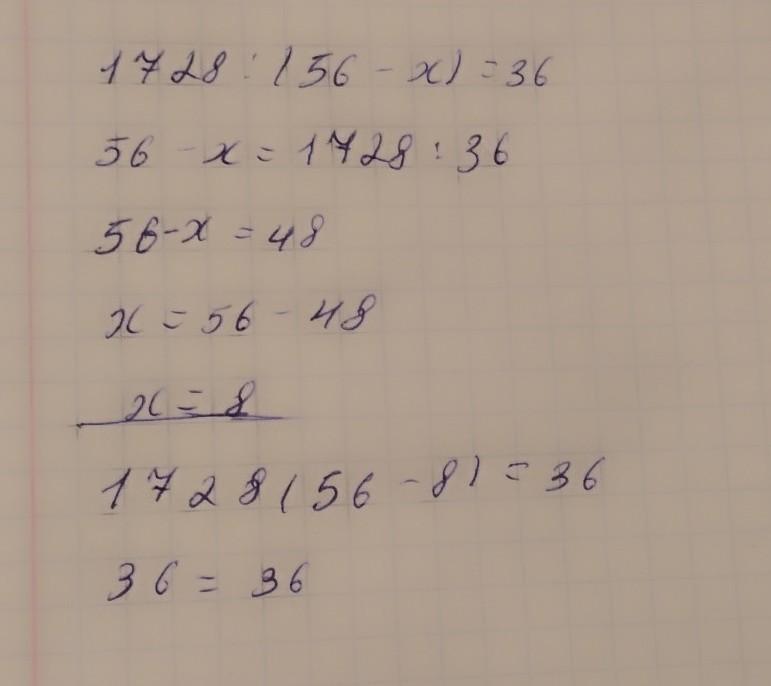 1728 : (56 - x) = 36
56 - x = 1728 : 36
56 - x = 48
x = 56 - 48
x = 8
1728 (56 - 8) = 36
36 = 36